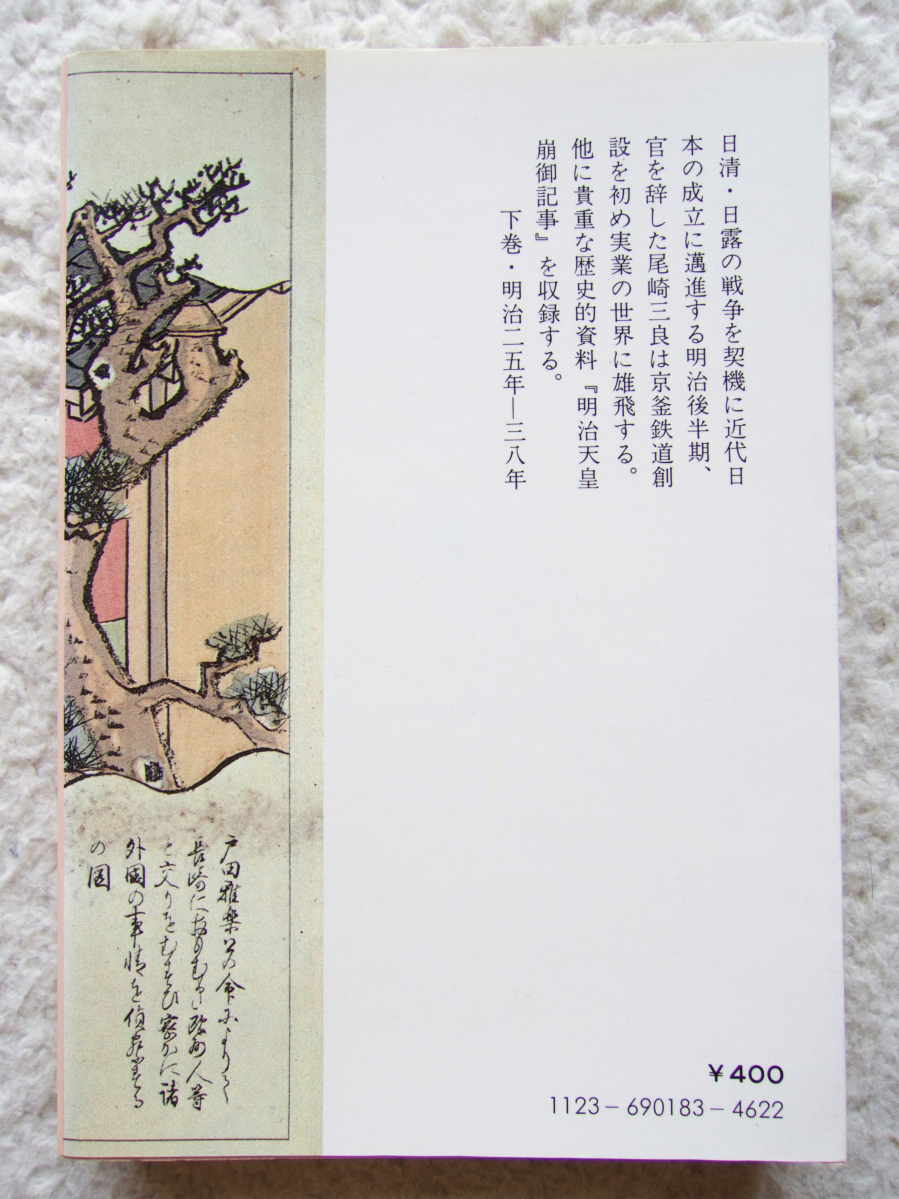 日清・日露の戦争を契機に近代日
本の成立に邁進する明治後半期、
官を辞した尾崎三良は京釜鉄道創
設を初め実業の世界に雄飛する。
他に貴重な歴史的資料『明治天皇
崩御記事』を収録する。
下巻・明治二五年―三八年
戸田雅楽公の命により
長崎におもむき
と交りをむすひ密かに諸
外國の事情を偵察する
の図
¥400
1123-690183-4622